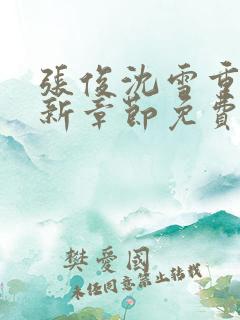 張俊沈雪重
新章節免費
樊愛國
未經同意禁止轉載